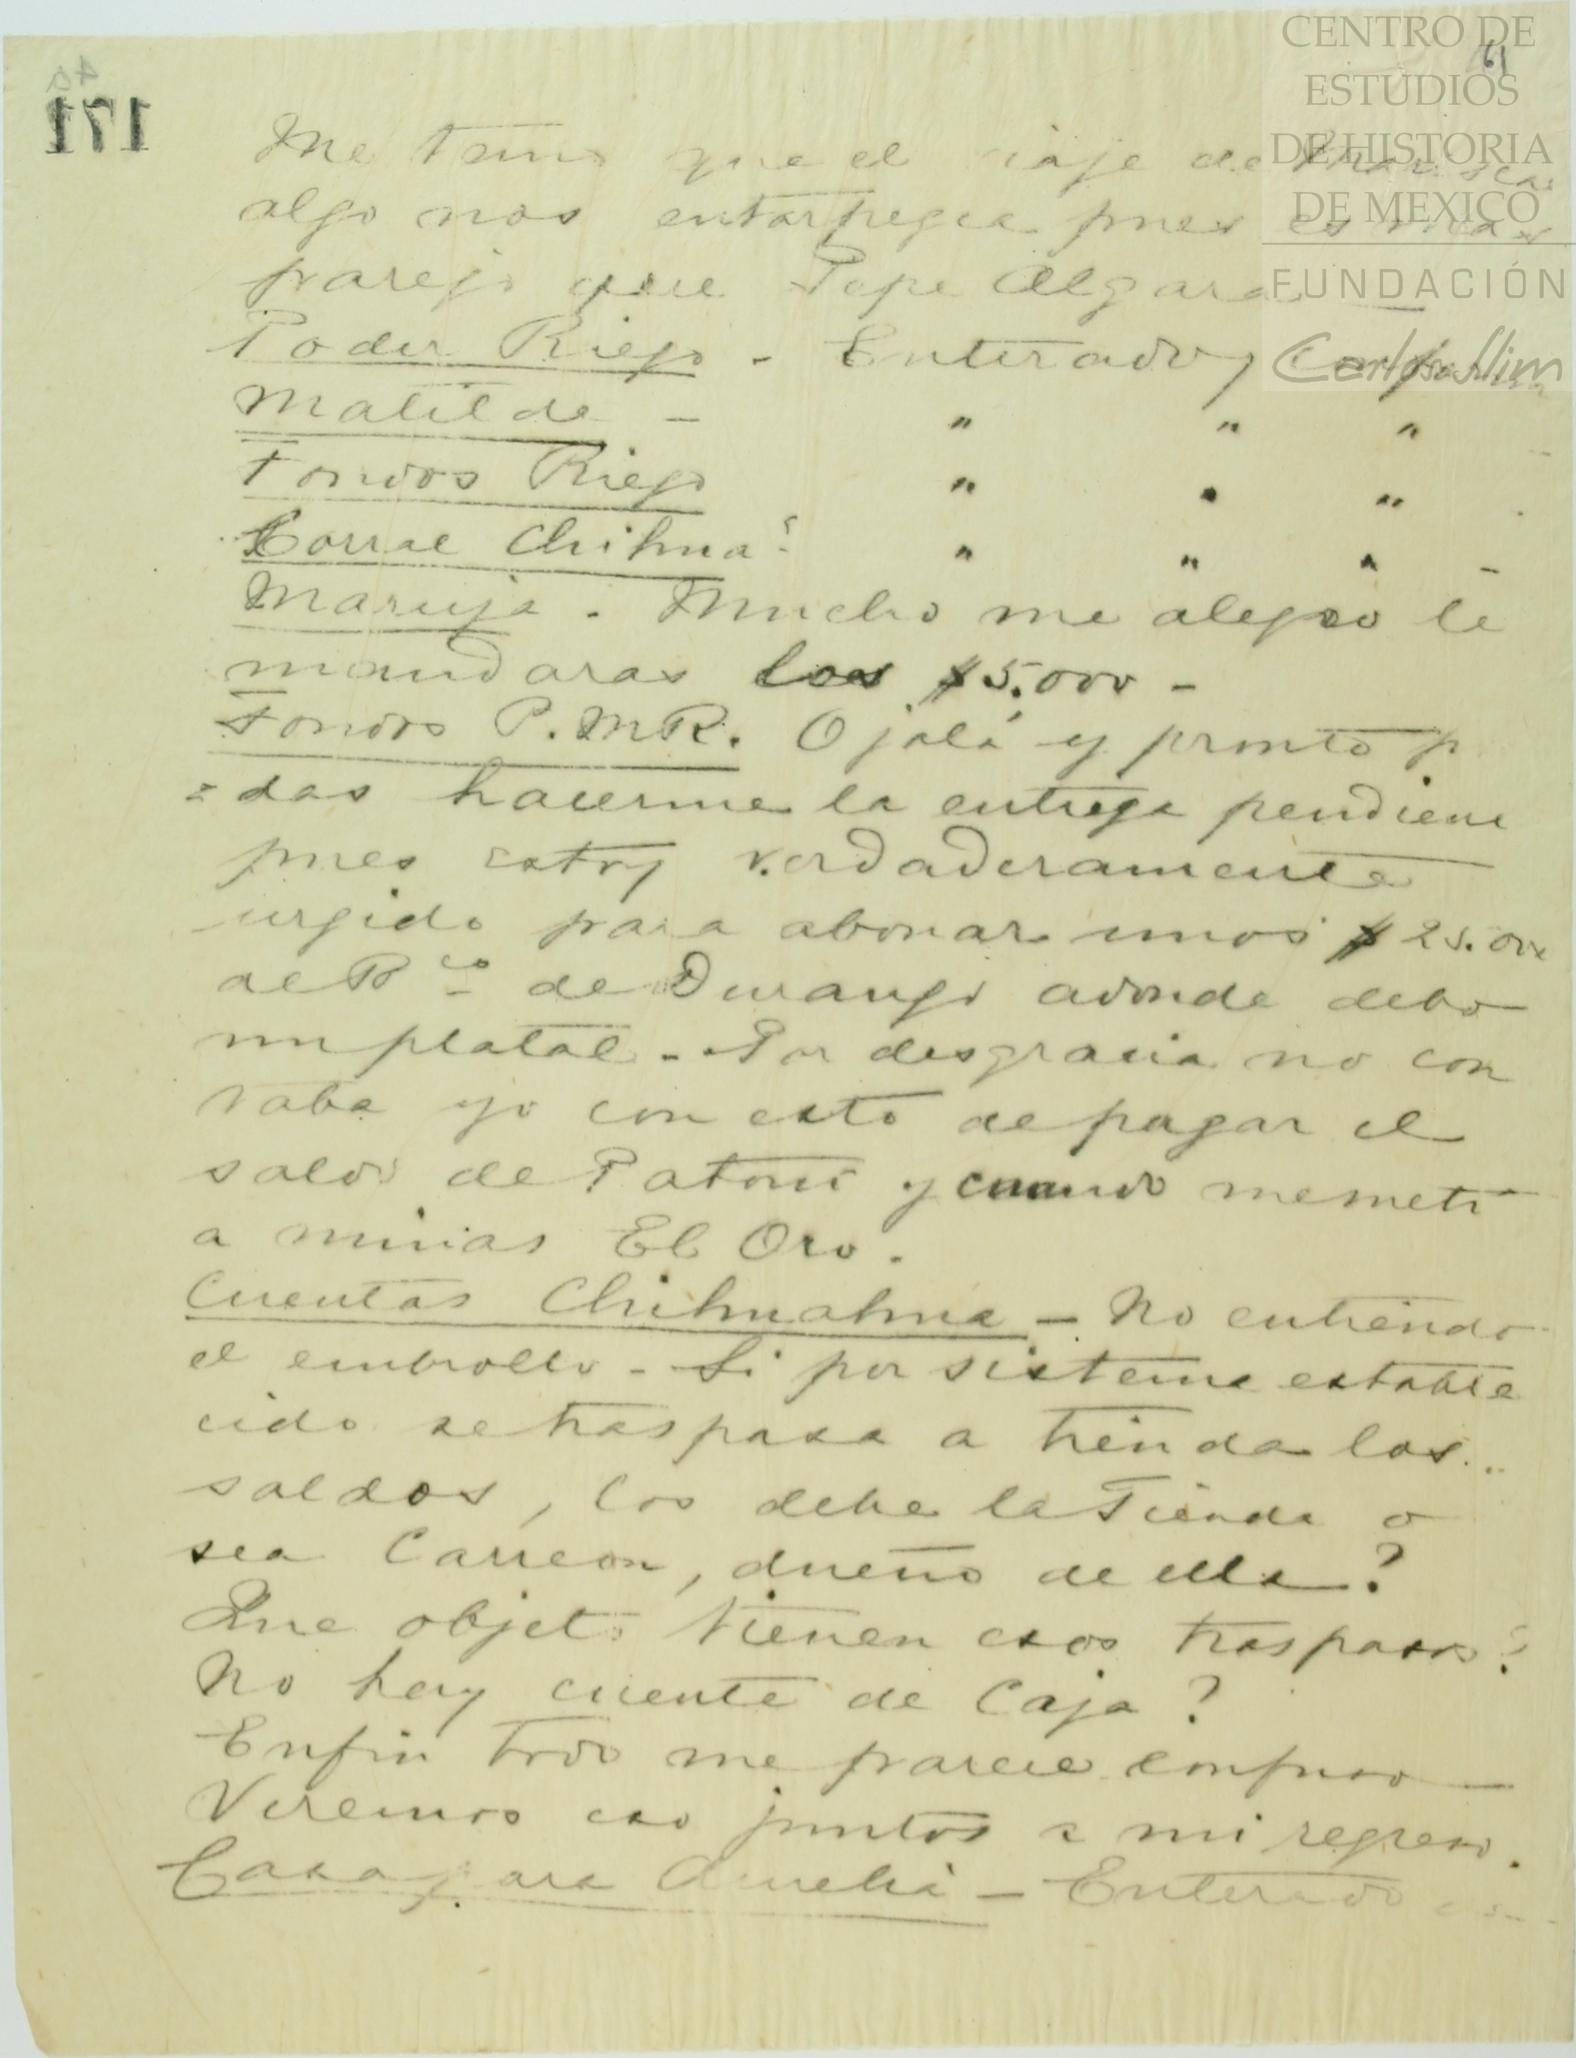 171
Me temo que el viaje de
algo nos entorpezca pues es mas
parejo que Pepe Algara
Poder Riego - Enterado y
Matilde - " " "
Fondos Riego " " "
Corral Chihuaˢ " " " -
Maruja. Mucho me alegro le
mandaras los $5.000 -
Fondos P.MR. Ojalá y pronto p
=das hacerme la entrega pendiene
pues estoy verdaderamente
urgido para abonar unos $25.000
al Bco de Durango adonde debo
un platal - Por desgracia no con
taba yo con esto de pagar el
saldo de Patoni y cuando me meti
a minas El Oro.
Cuentas Chihuahua - No entiendo
el embrollo - Si por sistema estable
cido se traspasa a tienda los
saldos, los debe la Tienda o
sea Carreon, dueño de ella?
Que objeto tienen esos traspasos?
No hay cuenta de Caja?
Enfin todo me parece confuso -
Veremos eso juntos a mi regreso.
Casa para Amelia - Enterado
CENTRO DE
ESTUDIOS
DE HISTORIA
DE MEXICO
FUNDACIÓN
Carlos Slim